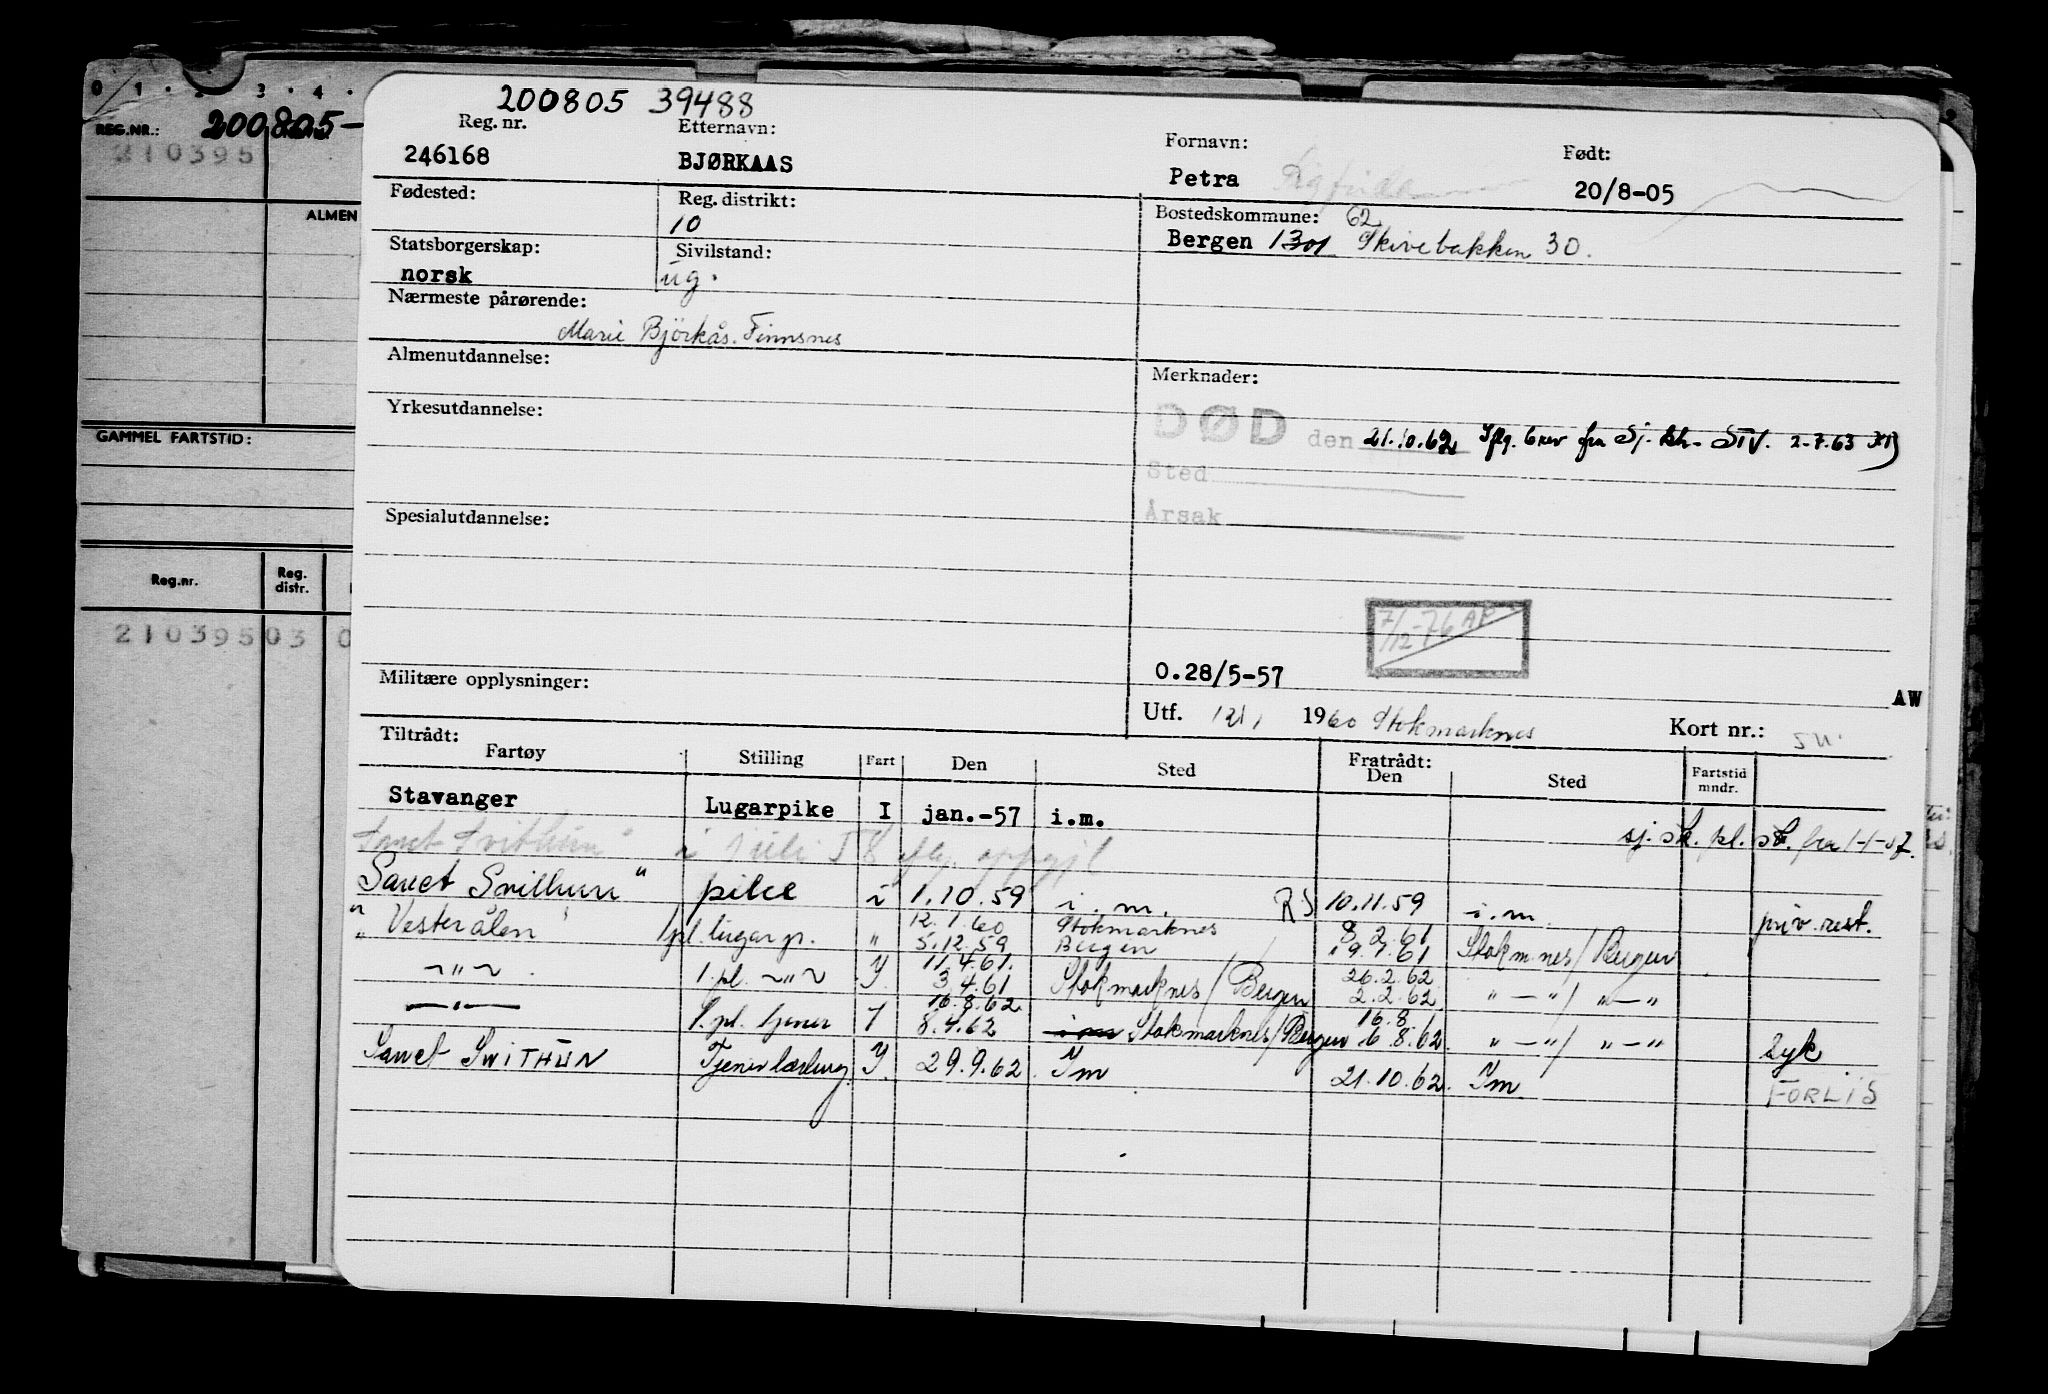 0 1 . 2 3 . 4 .
REG.NR.: 200805-
210395
ALMEN
GAMMEL FARTSTID:
Reg.nr. Reg. distr.
210395 03 0
200805 39488
Reg. nr. Etternavn: Fornavn: Født:
246168 BJØRKAAS Petra 20/8-05
Fødested: Reg. distrikt: Bostedskommune: 62
10 Bergen 1301 Skivebakken 30.
Statsborgerskap: Sivilstand:
norsk ug.
Nærmeste pårørende:
Marie Björkås. Finnsnes
Almenutdannelse: Merknader:
Yrkesutdannelse:
DØD den 21.10.62 Iflg. brev fra Sj. STV. 2-7.63
Sted
Årsak
Spesialutdannelse:
7/12-76 AP
0.28/5-57
Militære opplysninger: AW
Utf. 12/1 1960 Stokmarknes Kort nr.:
Tiltrådt: Fratrådt:
Fartøy Stilling Fart Den Sted Den Sted Fartstid mndr.
Stavanger Lugarpike I jan.-57 i.m.
sj. sk. pl. sk. fra 1-1-57.
Sanct Svithun" i juli 58 iflg. oppgj
Sanct Svithun" pike i 1.10.59 i.m. RS 10.11.59 i.m. priv. rest.
12.1.60 Stokmarknes 8.2.61
" Vesterålen lpl. lugarp. " 5.12.59 Bergen 19.1.61 Stokm.nes/Bergen
11.4.61. 26.2.62
~"~ . 1.pl. ~"~ Y. 3.4.61 Stokmarknes/Bergen 2.2.62 "—"/ "—"
16.8.62 16.8
—"— 1.pl. tjener I 8.4.62 im Stokmarknes/Bergen 16.8.62. "—"/ "—" Syk
Sanct SWITHUN Tjener Y. 29.9.62 Im 21.10.62. Im FORLIS